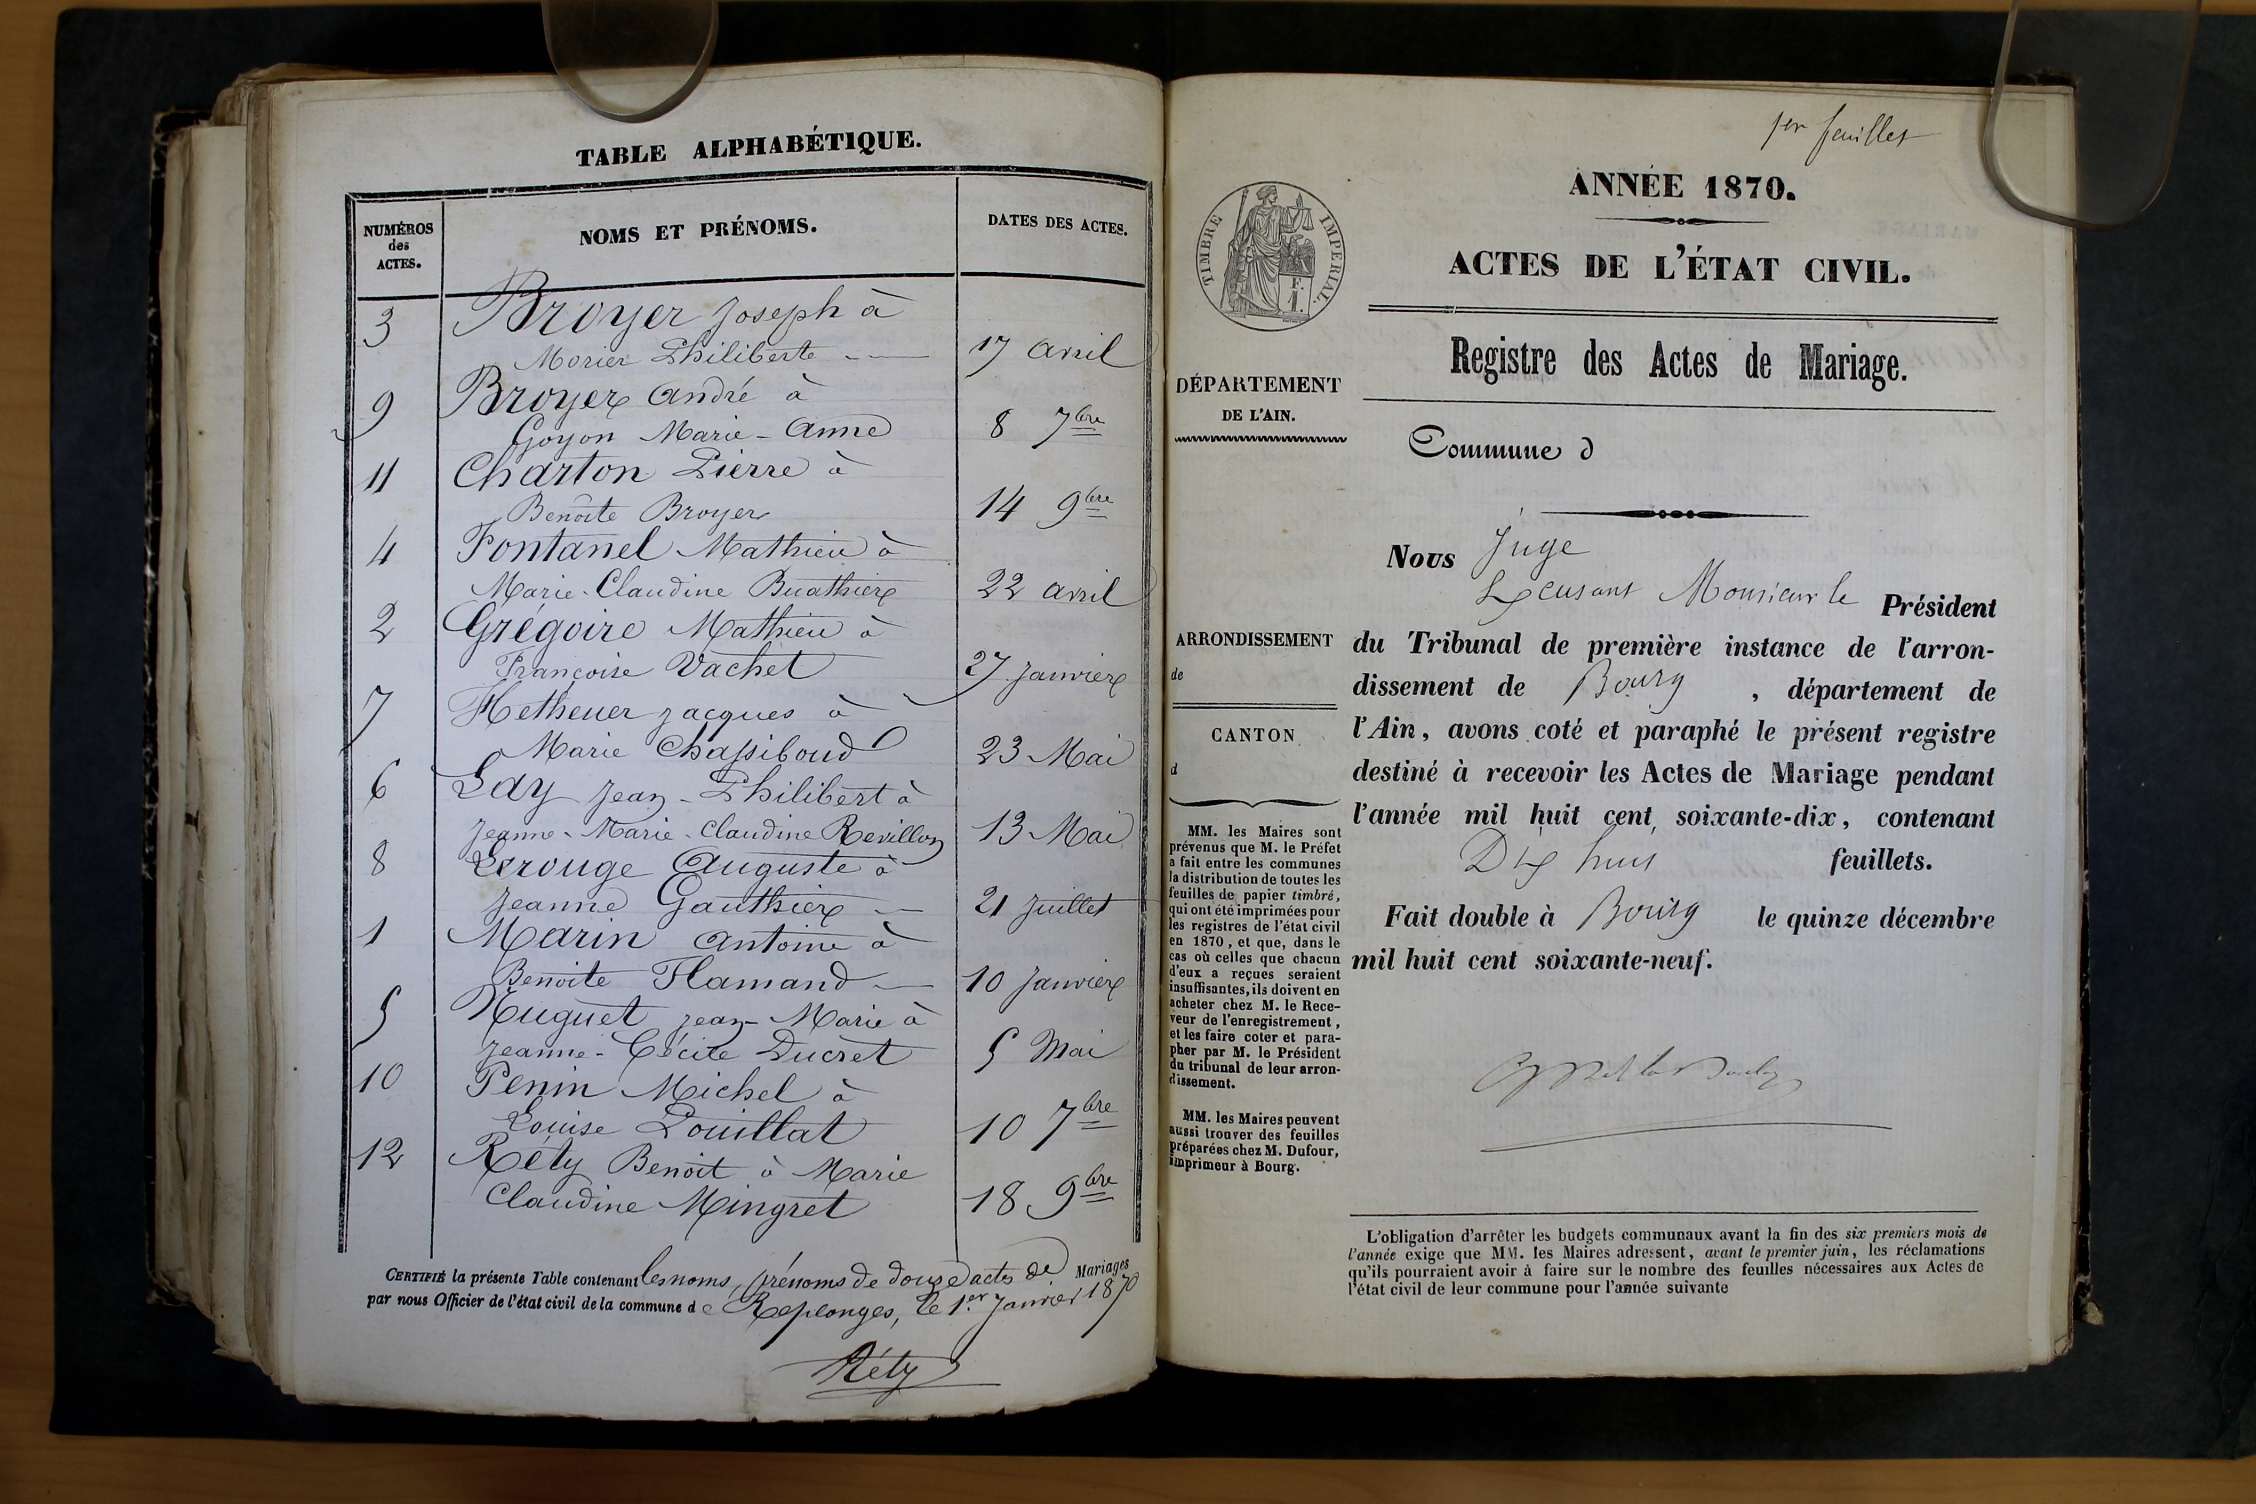 TABLE ALPHABÉTIQUE.
NUMÉROS
des
ACTES.
NOMS ET PRÉNOMS.
DATES DES ACTES.
3 Broyer Joseph à
Morier Philiberte 17 avril
9 Broyer André à
Goyon Marie-Anne 8 7bre
11 Charton Pierre à
Benoite Broyer 14 9bre
4 Fontanel Mathieu à
Marie-Claudine Buathier 22 avril
2 Grégoire Mathieu à
Françoise Vachet 27 Janvier
7 Hetheuer Jacques à
Marie Chassiboud 23 Mai
6 Lay Jean-Philibert à
Jeanne-Marie-Claudine Revillon 13 Mai
8 Lerouge Auguste à
Jeanne Gauthier 21 Juillet
1 Marin Antoine à
Benoite Flamand 10 Janvier
5 Nuguet Jean-Marie à
Jeanne-Cécile Ducret 5 Mai
10 Penin Michel à
Louise Pouillat 10 7bre
12 Réty Benoit à Marie
Claudine Mingret 18 9bre
CERTIFIÉ la présente Table contenant les noms, prénoms de douze actes de Mariages
par nous Officier de l'état civil de la commune de Replonges, le 1er Janvier 1870
Réty
1er feuillet
ANNÉE 1870.
ACTES DE L'ÉTAT CIVIL.
Registre des Actes de Mariage.
TIMBRE IMPÉRIAL.
F.
1.
DÉPARTEMENT
DE L'AIN.
ARRONDISSEMENT
de
CANTON
d
MM. les Maires sont
prévenus que M. le Préfet
a fait entre les communes
la distribution de toutes les
feuilles de papier timbré,
qui ont été imprimées pour
les registres de l'état civil
en 1870, et que, dans le
cas où celles que chacun
d'eux a reçues seraient
insuffisantes, ils doivent en
acheter chez M. le Rece-
veur de l'enregistrement,
et les faire coter et para-
pher par M. le Président
du tribunal de leur arron-
dissement.
MM. les Maires peuvent
aussi trouver des feuilles
préparées chez M. Dufour,
imprimeur à Bourg.
Commune d
Nous Juge
Monsieur le Président
du Tribunal de première instance de l'arron-
dissement de Bourg, département de
l'Ain, avons coté et paraphé le présent registre
destiné à recevoir les Actes de Mariage pendant
l'année mil huit cent soixante-dix, contenant
Dix huit feuillets.
Fait double à Bourg le quinze décembre
mil huit cent soixante-neuf.
L'obligation d'arrêter les budgets communaux avant la fin des six premiers mois de
l'année exige que MM. les Maires adressent, avant le premier juin, les réclamations
qu'ils pourraient avoir à faire sur le nombre des feuilles nécessaires aux Actes de
l'état civil de leur commune pour l'année suivante